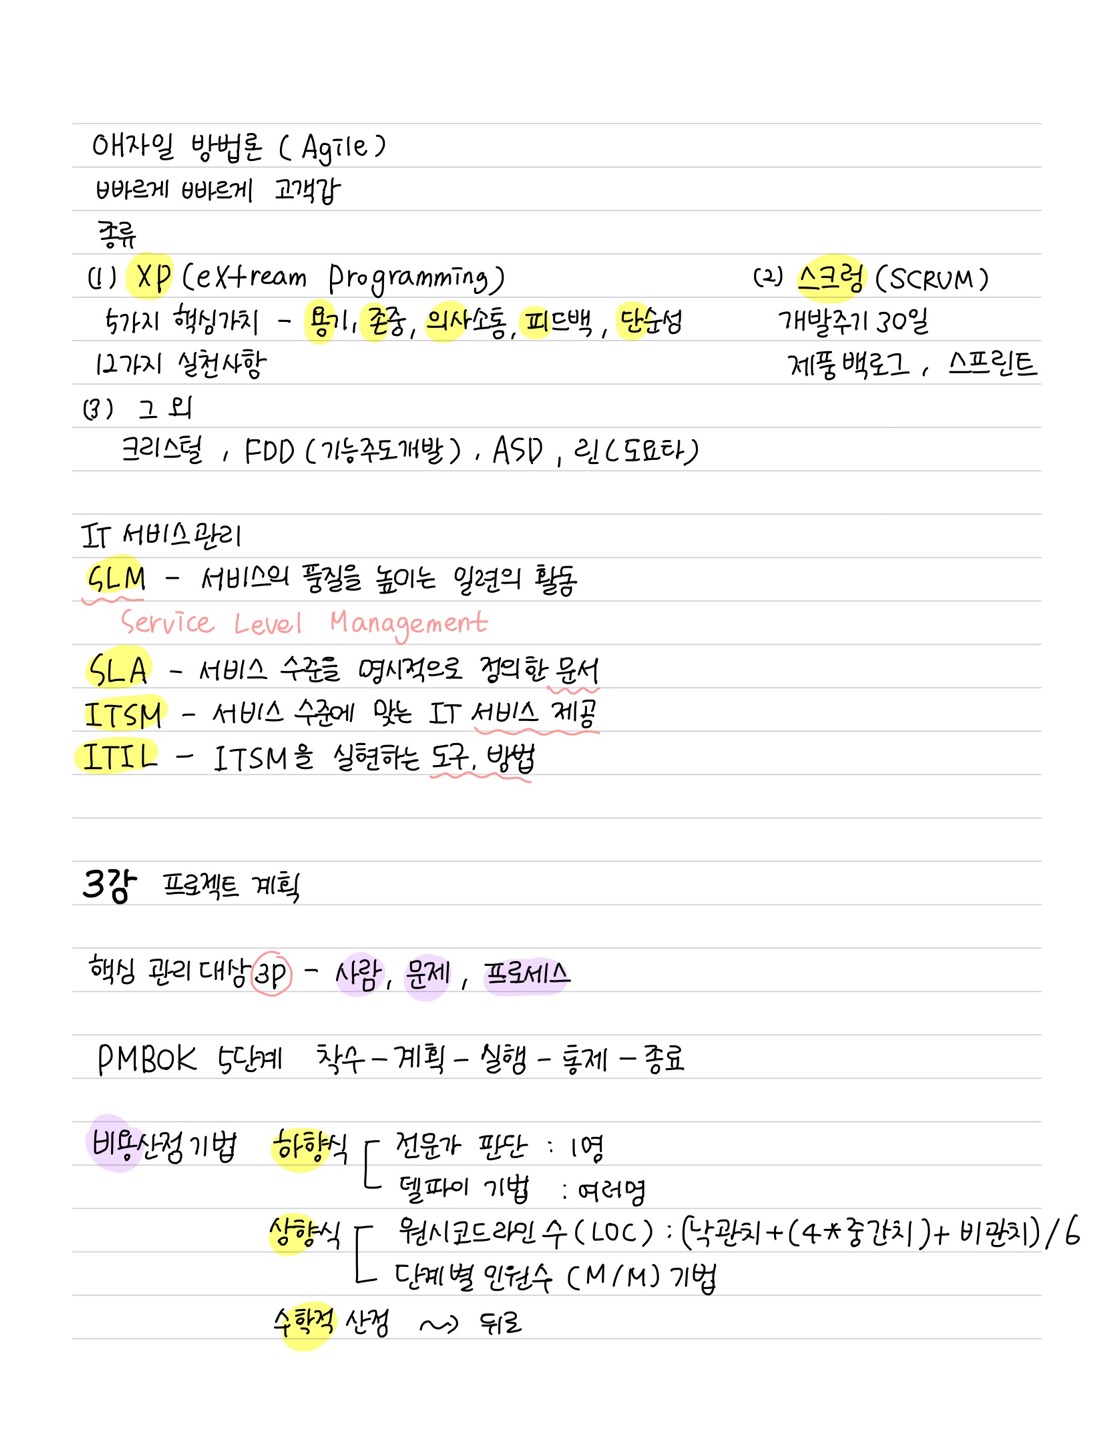 애자일 방법론 ( Agile )
빠르게 빠르게 고객갑
종류
(1) XP (eXtream Programming)
5가지 핵심가치 - 용기, 존중, 의사소통, 피드백, 단순성
12가지 실천사항
(2) 스크럼 (SCRUM)
개발주기 30일
제품백로그, 스프린트
(3) 그 외
크리스털, FDD (기능주도개발), ASD, 린(도요타)
IT 서비스관리
SLM - 서비스의 품질을 높이는 일련의 활동
Service Level Management
SLA - 서비스 수준을 명시적으로 정의한 문서
ITSM - 서비스 수준에 맞는 IT 서비스 제공
ITIL - ITSM을 실현하는 도구, 방법
3강 프로젝트 계획
핵심 관리 대상 3P - 사람, 문제, 프로세스
PMBOK 5단계 착수 - 계획 - 실행 - 통제 - 종료
비용산정 기법 하향식 전문가 판단 : 1명
델파이 기법 : 여러명
상향식 원시코드라인 수 (LOC) : (낙관치+(4*중간치)+비관치)/6
단계별 인원수 (M/M) 기법
수학적 산정 ~> 뒤로